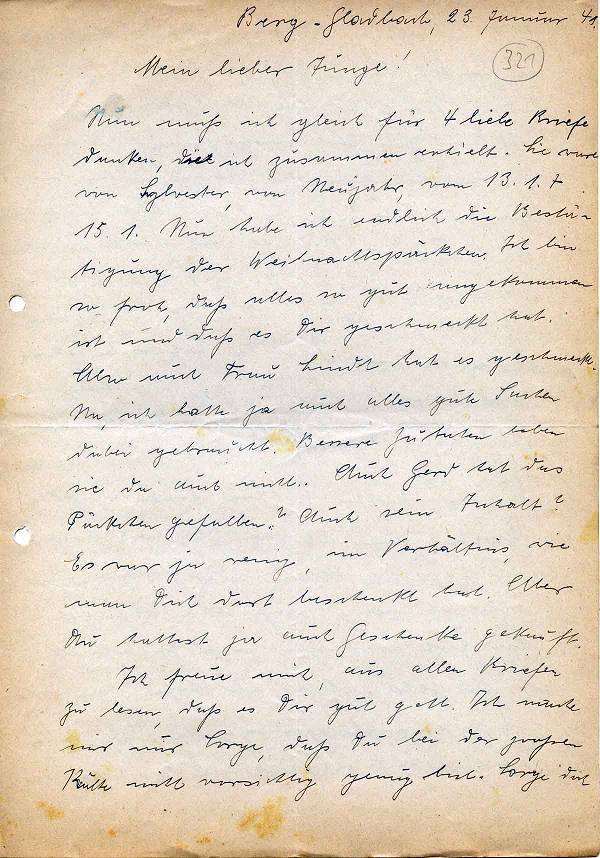 Berg-Gladbach, 23. Januar 41.
321
Mein lieber Junge!
Nun muß ich gleich für 4 liebe Briefe
danken, die ich zusammen erhielt. Sie waren
von Sylvester, von Neujahr, vom 13.1. +
15.1. Nun habe ich endlich die Bestä-
tigung der Weihnachtspäckchen. Ich bin
so froh, daß alles so gut angekommen
ist und daß es Dir geschmeckt hat.
Also auch Frau Lindt hat es geschmeckt.
Na, ich hatte ja auch alles gute Sachen
dabei gebraucht. Bessere Zutaten haben
sie da auch nicht. Auch Gerd hat das
Päckchen gefallen? Auch sein Inhalt?
Es war ja wenig, im Verhältnis, wie
man Dich dort beschenkt hat. Aber
Du hattest ja auch Geschenke gekauft.
Ich freue mich, aus allen Briefen
zu lesen, daß es Dir gut geht. Ich mache
mir nur Sorge, daß Du bei der großen
Kälte nicht vorsichtig genug bist. Sorge doch